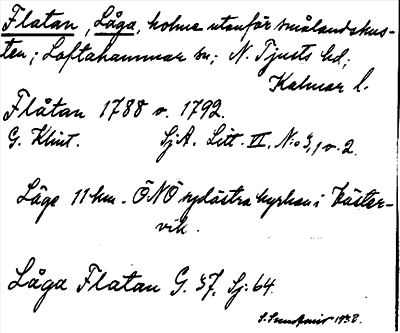 Flatan, Låga, holme utanför smålandskus-
ten; Loftahammar sn; N. Tjusts hd;
Kalmar l.
Flåtan 1788 o. 1792.
G. Klint. SjA. Litt. VI. N:o 3, 1 o. 2.
Läge 11 km. ÖNÖ sydöstra kyrkan i Väster-
vik.
Låga Flatan G. 37, Sj: 64.
1938.